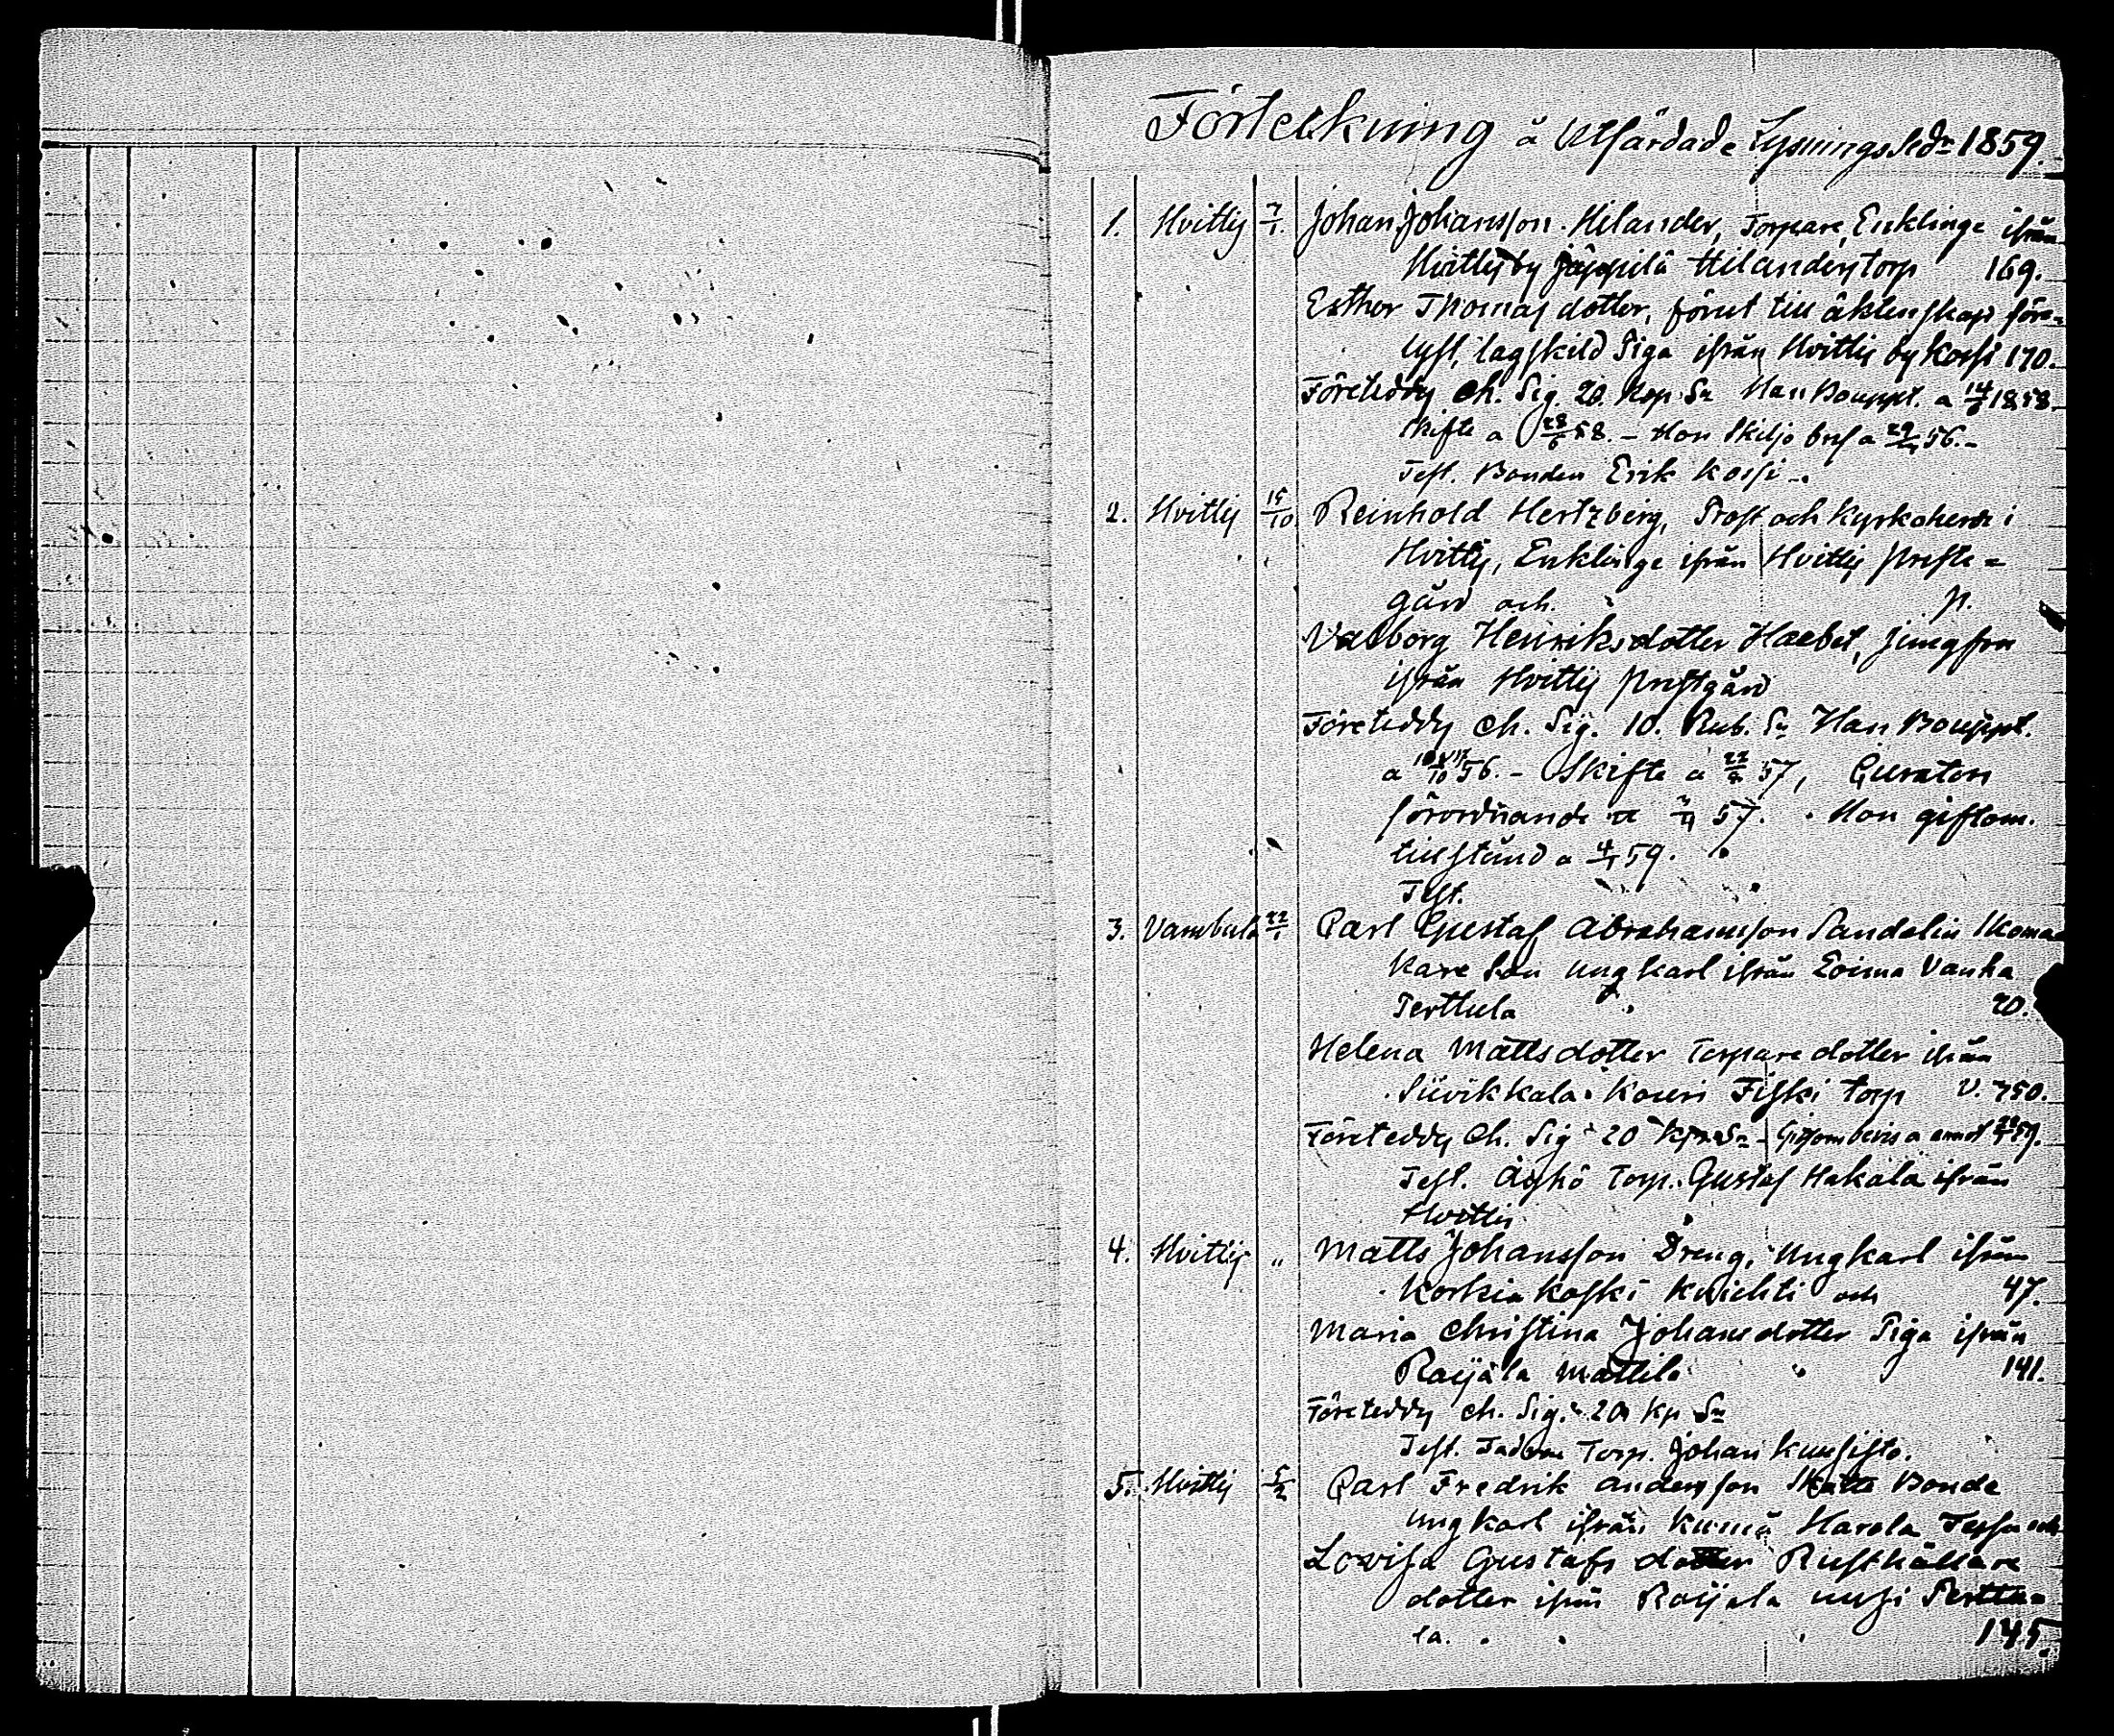 Förteckning å Utfärdade Lysnings Sedr 1859.
1. Hvittis 7/1. Johan Johansson Hilander, Torpare, Enklinge ifrån
Hvittisby Jäppilä Hilanders torp 169.
Esther Thomas dotter, förut till äktenskap före-
lyst, lagskild Piga ifrån Hvittis by Kossi 170.
Företeddes Ch. Sig. 20. Kop. Sr Han Bouppt. a 14/6 1858.
skifte a 28/6 58. - Hon Skiljobref a 29/4 56. -
Test. Bonden Erik Kossi -.
2. Hvittis 15/10 Reinhold Hertzberg, Prost och Kyrkoherde i
Hvittis, Enklinge ifrån Hvittis Preste-
gård och p.
Valborg Henriksdotter Haebel, Jungfru
ifrån Hvittis Prestgård
Företeddes Ch. Sig. 10. Rub. Sr Han Bouppt.
a 10 56. - Skifte a 57, Curators
förordnande a 57. Hon giftom.
tillstånd a 4/1 59.
Test.
3. Vambula 22/1 Carl Gustaf Abrahamsson Sandelin Skoma-
kare Son ungkarl ifrån Loima Vanha
Perttula 20.
Helena Mattsdotter Torpare dotter ifrån
Suvikkala Kouri Fiski torp V. 750.
Företeddes Ch. Sig 20 Kp. Sr - Giftom bevis a 59.
Test. Torp. Gustaf Hakala ifrån
Hvittis
4. Hvittis " Matts Johansson Dreng, Ungkarl ifrån
Korkiakoski Knichti och 47.
Maria Christina Johansdotter Piga ifrån
Raijala Mattila 141.
Företeddes Ch. Sig. 20 Kp Sr
Test. Fadren Torp. Johan Kuusisto.
5. Hvittis 5/2 Carl Fredrik Andersson Skatte Bonde
ungkarl ifrån Kumå Harola och
Lovisa Gustafs dotter Rusthållare
dotter ifrån Raijala uusi Perttu-
la. 145.